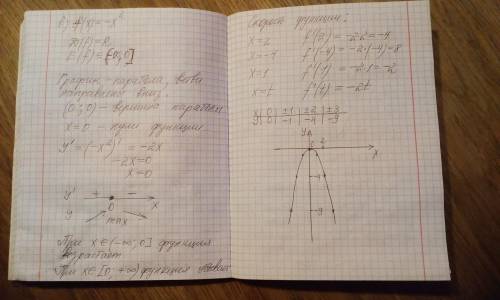 в) f(x)=-x²
D(f)=R
E(f)=[0;0]
График - парабола, ветви
направлены вниз.
(0;0) - вершина параболы
x=0 - нули функции
y'=(-x²)'=-2x
-2x=0
x=0
y' + -
0 x
y max
При x∈(-∞;0] функция
возрастает
При x∈[0;+∞) функция убывает
Скорость функции:
x=2 f'(2)=-2·2=-4
x=-4 f'(-4)=-2·(-4)=8
x=1 f'(1)=-2·1=-2
x=t f'(t)=-2t
x 0 ±1 ±2 ±3
y 0 -1 -4 -9
y
x
-9